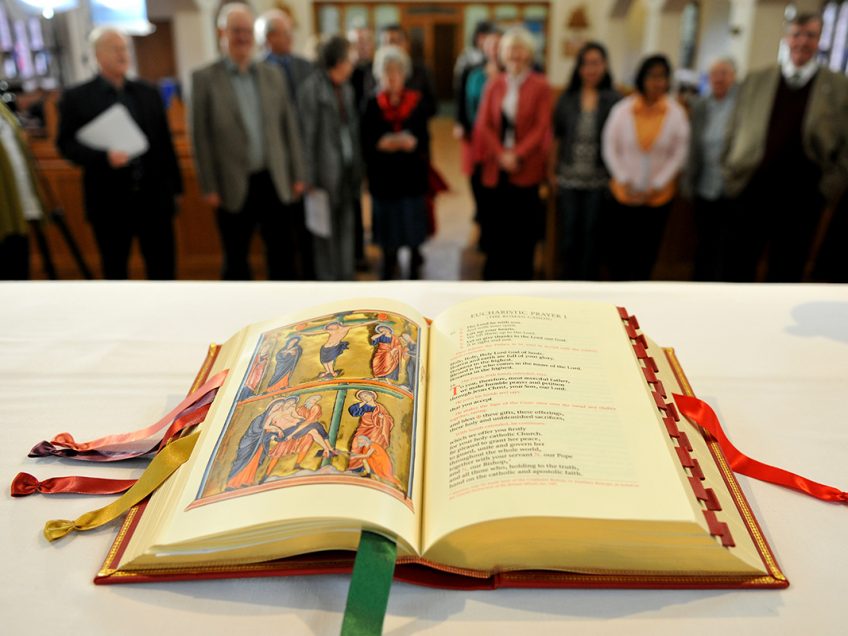 EUCHARISTIC PRAYER I
(THE ROMAN CANON)
The Lord be with you.
And with your spirit.
Lift up your hearts.
We lift them up to the Lord.
Let us give thanks to the Lord our God.
It is right and just.
Holy, Holy, Holy Lord God of hosts.
Heaven and earth are full of your glory.
Hosanna in the highest.
Blessed is he who comes in the name of the Lord.
Hosanna in the highest.
To you, therefore, most merciful Father,
we make humble prayer and petition
through Jesus Christ, your Son, our Lord:
that you accept
and bless ✠ these gifts, these offerings,
these holy and unblemished sacrifices,
which we offer you firstly
for your holy catholic Church.
Be pleased to grant her peace,
to guard, unite and govern her
throughout the whole world,
together with your servant N. our Pope
and N. our Bishop,
and all those who, holding to the truth,
hand on the catholic and apostolic faith.